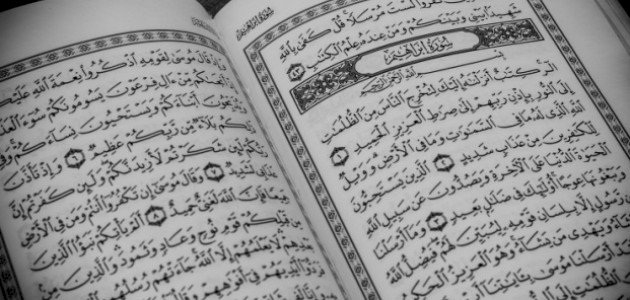 سُورَةُ إِبْرَاهِيمَ
كَفَرُوا لَسْتَ مُرْسَلًا قُلْ كَفَىٰ بِاللَّهِ
شَهِيدًا بَيْنِي وَبَيْنَكُمْ وَمَنْ عِندَهُ عِلْمُ الْكِتَٰبِ ٤٣
سُورَةُ إِبْرَاهِيمَ
بِسْمِ اللَّهِ الرَّحْمَٰنِ الرَّحِيمِ
الٓر كِتَٰبٌ أَنزَلْنَٰهُ إِلَيْكَ لِتُخْرِجَ النَّاسَ مِنَ الظُّلُمَٰتِ
إِلَى النُّورِ بِإِذْنِ رَبِّهِمْ إِلَىٰ صِرَٰطِ الْعَزِيزِ الْحَمِيدِ ١
اللَّهِ الَّذِي لَهُ مَا فِي السَّمَٰوَٰتِ وَمَا فِي الْأَرْضِ وَوَيْلٌ
لِّلْكَٰفِرِينَ مِنْ عَذَابٍ شَدِيدٍ ٢ الَّذِينَ يَسْتَحِبُّونَ
الْحَيَوٰةَ الدُّنْيَا عَلَى الْآخِرَةِ وَيَصُدُّونَ عَن سَبِيلِ اللَّهِ
وَيَبْغُونَهَا عِوَجًا أُولَٰئِكَ فِي ضَلَٰلٍ بَعِيدٍ ٣ وَمَا أَرْسَلْنَا
مِن رَّسُولٍ إِلَّا بِلِسَانِ قَوْمِهِ لِيُبَيِّنَ لَهُمْ فَيُضِلُّ اللَّهُ
مَن يَشَاءُ وَيَهْدِي مَن يَشَاءُ وَهُوَ الْعَزِيزُ الْحَكِيمُ
أَرْسَلْنَا مُوسَىٰ بِـَٔايَٰتِنَا
وَإِذْ قَالَ مُوسَىٰ لِقَوْمِهِ اذْكُرُوا نِعْمَةَ اللَّهِ عَلَيْكُمْ
أَنجَىٰكُم مِّنْ ءَالِ فِرْعَوْنَ يَسُومُونَكُمْ سُوءَ الْعَذَابِ
أَبْنَاءَكُمْ وَيَسْتَحْيُونَ نِسَاءَكُمْ وَفِي
ذَٰلِكُم بَلَاءٌ مِّن رَّبِّكُمْ عَظِيمٌ ٦ وَإِذْ تَأَذَّنَ
رَبُّكُمْ لَئِن شَكَرْتُمْ لَأَزِيدَنَّكُمْ وَلَئِن كَفَرْتُمْ إِنَّ
لَشَدِيدٌ ٧ وَقَالَ مُوسَىٰ إِن تَكْفُرُوا أَنتُمْ وَمَن فِي الْأَرْضِ
جَمِيعًا فَإِنَّ اللَّهَ لَغَنِيٌّ حَمِيدٌ ٨ أَلَمْ يَأْتِكُمْ نَبَؤُا الَّذِينَ
مِن قَبْلِكُمْ قَوْمِ نُوحٍ وَعَادٍ وَثَمُودَ وَالَّذِينَ مِن
بَعْدِهِمْ لَا يَعْلَمُهُمْ إِلَّا اللَّهُ جَاءَتْهُمْ رُسُلُهُم
فَرَدُّوا أَيْدِيَهُمْ فِي أَفْوَٰهِهِمْ وَقَالُوا